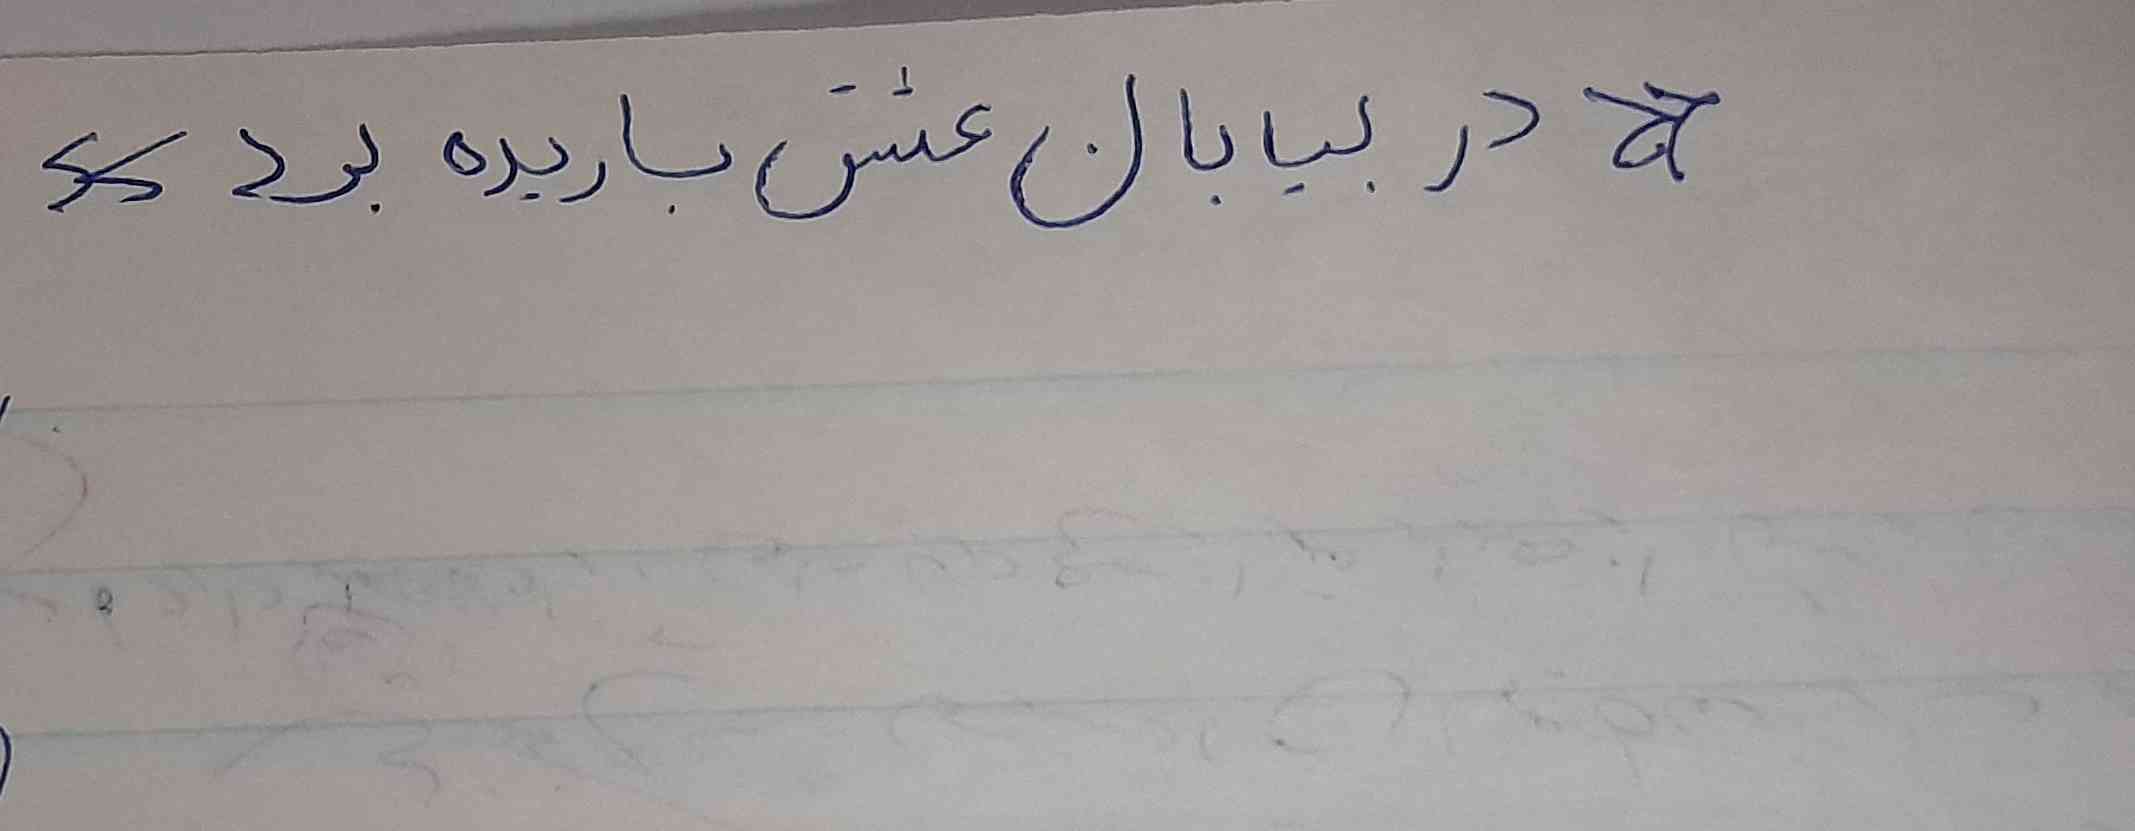 در بیابان عشق باریده بود